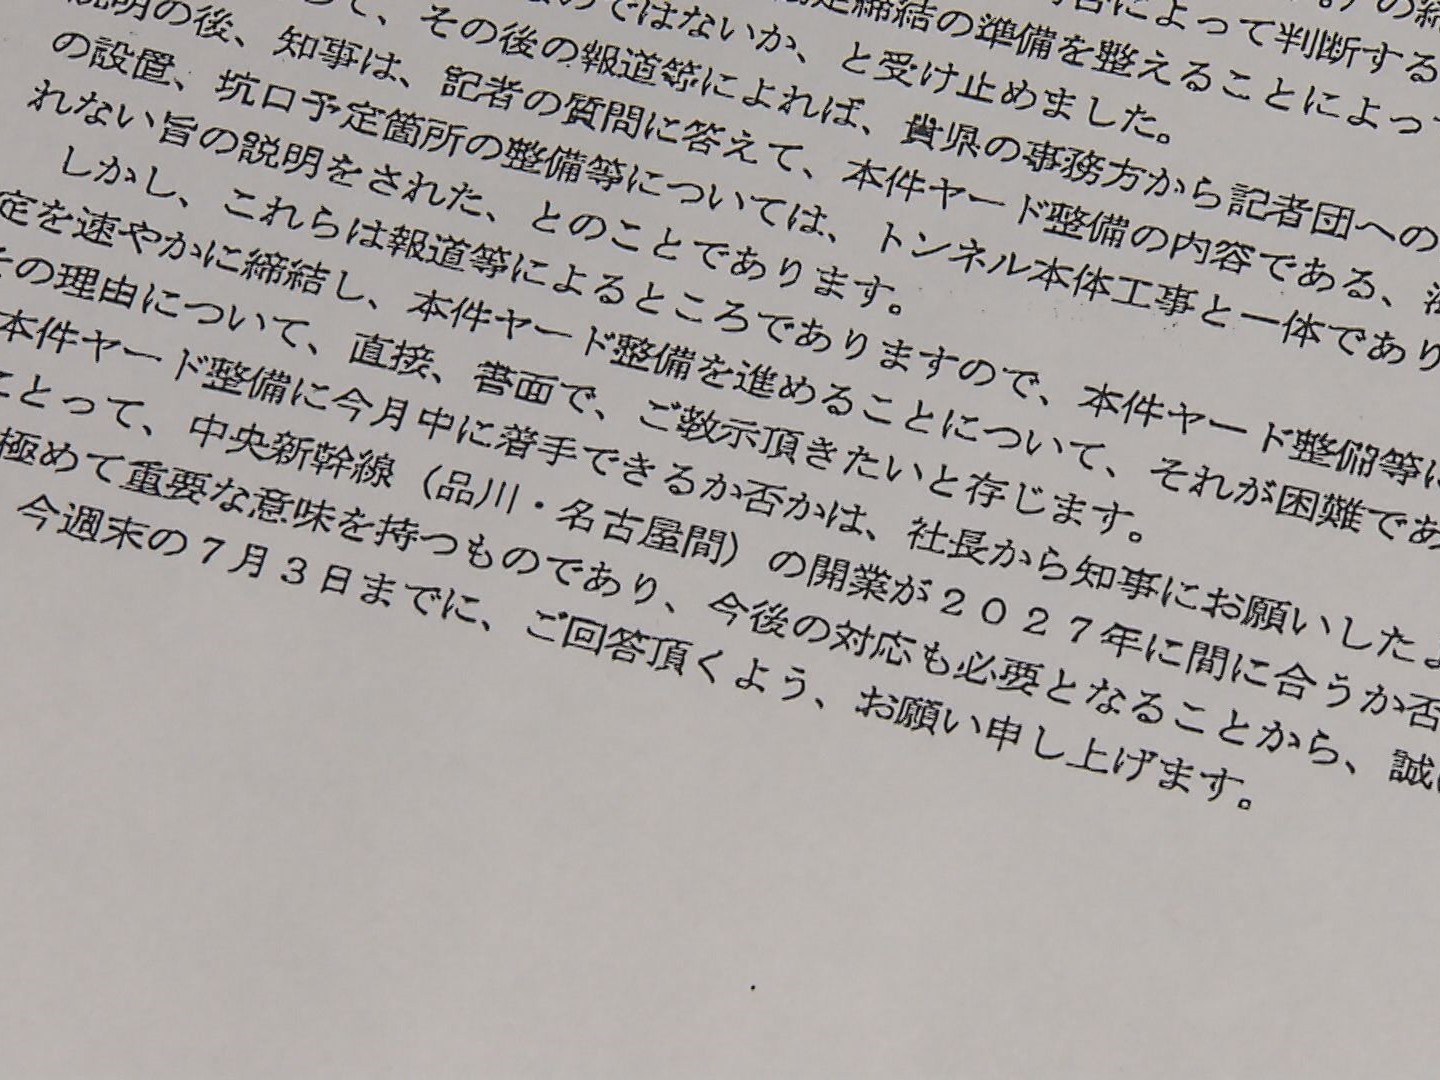 によって判断する
締結の準備を整えることによって
のではないか、と受け止めました。
て、その後の報道等によれば、貴県の事務方から記者団への
説明の後、知事は、記者の質問に答えて、本件ヤード整備の内容である、
の設置、坑口予定箇所の整備等については、トンネル本体工事と一体であり
れない旨の説明をされた、とのことであります。
しかし、これらは報道等によるところでありますので、本件ヤード整備等に
定を速やかに締結し、本件ヤード整備を進めることについて、それが困難であ
その理由について、直接、書面で、ご教示頂きたいと存じます。
本件ヤード整備に今月中に着手できるか否かは、社長から知事にお願いしたよ
とって、中央新幹線（品川・名古屋間）の開業が２０２７年に間に合うか否
極めて重要な意味を持つものであり、今後の対応も必要となることから、誠に
今週末の７月３日までに、ご回答頂くよう、お願い申し上げます。